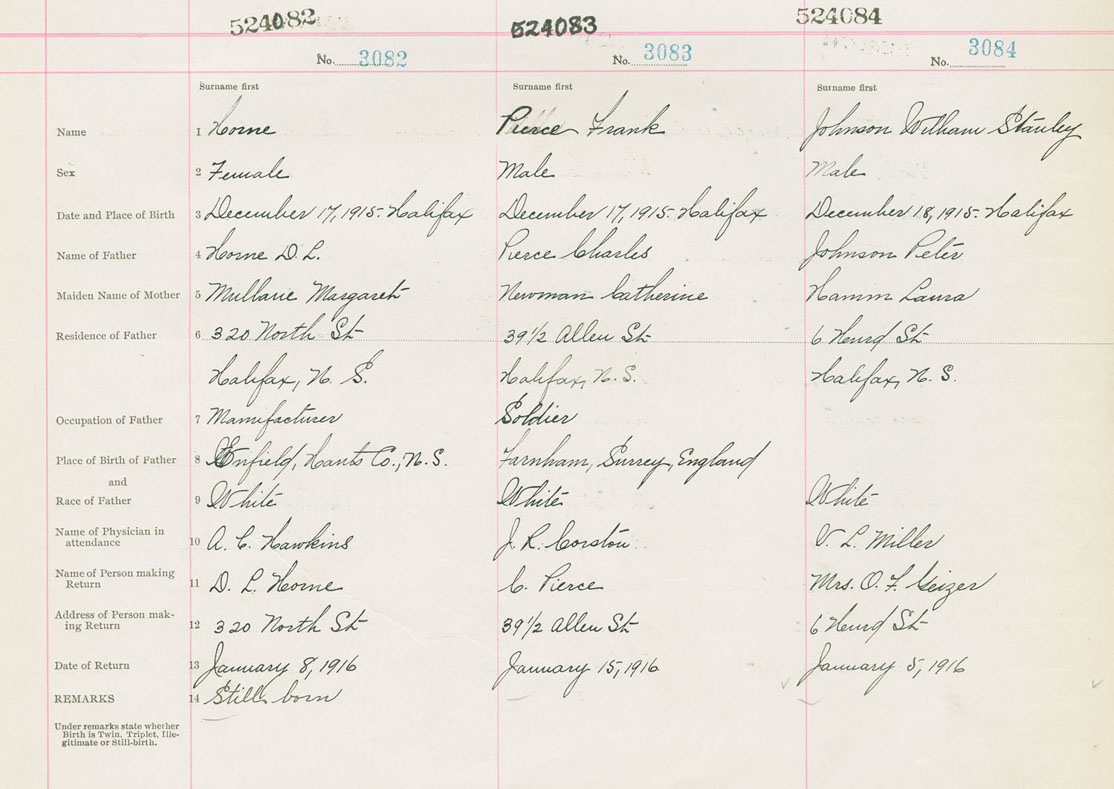 524082 524083 524084
No. 3082 No. 3083 No. 3084
Surname first Surname first Surname first
Name 1 Horne Pierce Frank Johnson William Stanley
Sex 2 Female Male Male
Date and Place of Birth 3 December 17, 1915 - Halifax December 17, 1915 - Halifax December 18, 1915 - Halifax
Name of Father 4 Horne D. L. Pierce Charles Johnson Peter
Maiden Name of Mother 5 Mullane Margaret Newman Catherine Hamm Laura
Residence of Father 6 320 North St 39 1/2 Allen St 6 St
Halifax, N. S. Halifax, N. S. Halifax, N. S.
Occupation of Father 7 Manufacturer Soldier
Place of Birth of Father 8 Enfield, Hants Co., N.S. Farnham, Surrey, England
and
Race of Father 9 White White White
Name of Physician in
attendance 10 A. C. Hawkins J. R. Corston V. L. Miller
Name of Person making
Return 11 D. L. Horne C. Pierce Mrs. O. F. Geizer
Address of Person mak-
ing Return 12 320 North St 39 1/2 Allen St 6 St
Date of Return 13 January 8, 1916 January 15, 1916 January 5, 1916
REMARKS 14 Still born
Under remarks state whether
Birth is Twin, Triplet, Ille-
gitimate or Still-birth.